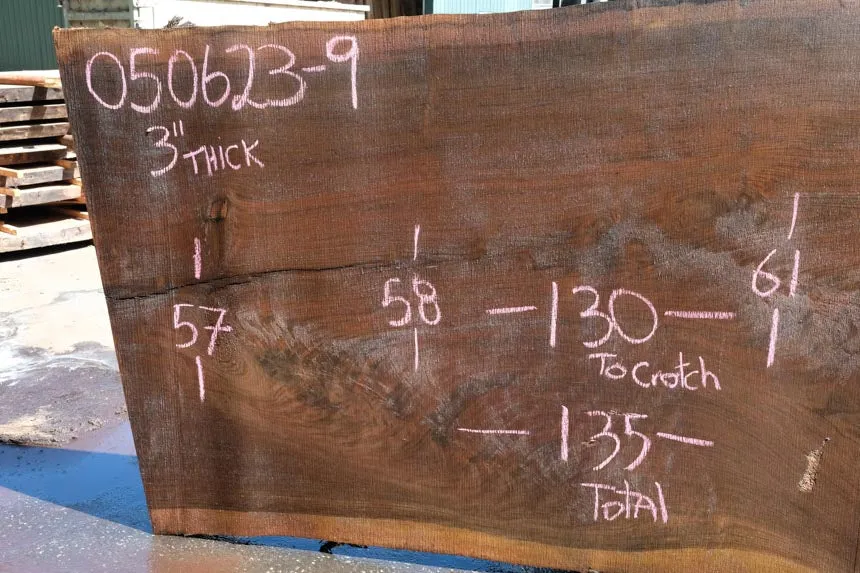 050623-9
3" THICK
57
58
-130-
61
To Crotch
-135-
Total